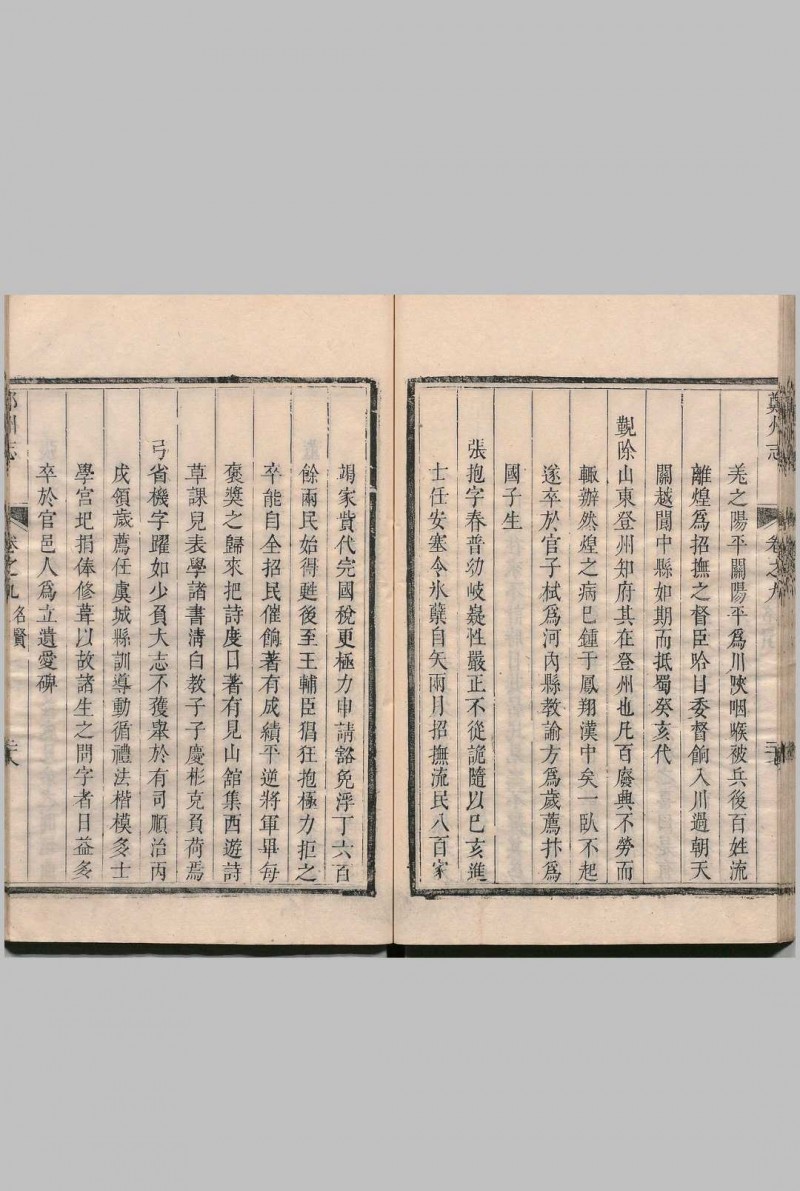 鄭州志
卷之九
羌之陽平關陽平爲川陝咽喉被兵後百姓流
離煌爲招撫之督臣哈目委督餉入川過朝天
關越閬中縣如期而抵蜀癸亥代
覲除山東登州知府其在登州也凡百廢興不勞而
輒辦然煌之病已鍾于鳳翔漢中矣一臥不起
遂卒於官子栻爲河內縣教諭方爲歲薦抃爲
國子生
張抱字春普幼岐嶷性嚴正不從詭隨以己亥進
士任安塞令氷蘖自矢兩月招撫流民八百家
竭家貲代完國稅更極力申請豁免浮丁六百
餘兩民始得甦後至王輔臣猖狂抱極力拒之
卒能自全招民催餉著有成績平逆將軍畢每
褒獎之歸來把詩度日著有見山舘集西遊詩
草課兒表學諸書淸白教子子慶彬克負荷焉
弓省機字躍如少負大志不獲舉於有司順治丙
戌領歲薦任虞城縣訓導動循禮法楷模多士
學宮圯捐俸修葺以故諸生之問字者日益多
卒於官邑人爲立遺愛碑
州志
卷之九 名賢